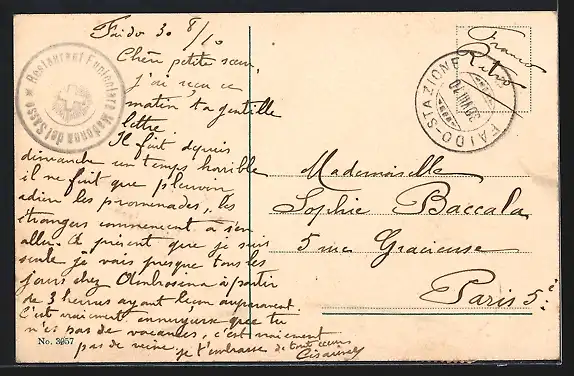 Faido 30 8/10
Chère petite sœur,
j'ai reçu ce
matin ta gentille
lettre.
Il fait depuis
dimanche un temps horrible
il ne fait que pleuvoir,
adieu les promenades, les
étrangers commencent à s'en
aller. A présent que je suis
seule je vais presque tous les
jours chez Ambrosina à partir
de 3 heures ayant leçon auparavant
C'est vraiment ennuyeux que tu
n'ai pas de vacances, c'est vraiment
pas de veine. je t'embrasse de tout cœur
No. 3957
Restaurant Funicolare Madonna del Sasso
Franco
Retro
FAIDO-STAZIONE
30 VIII 10
Mademoiselle
Sophie Baccala
5 rue Gracieuse
Paris 5e